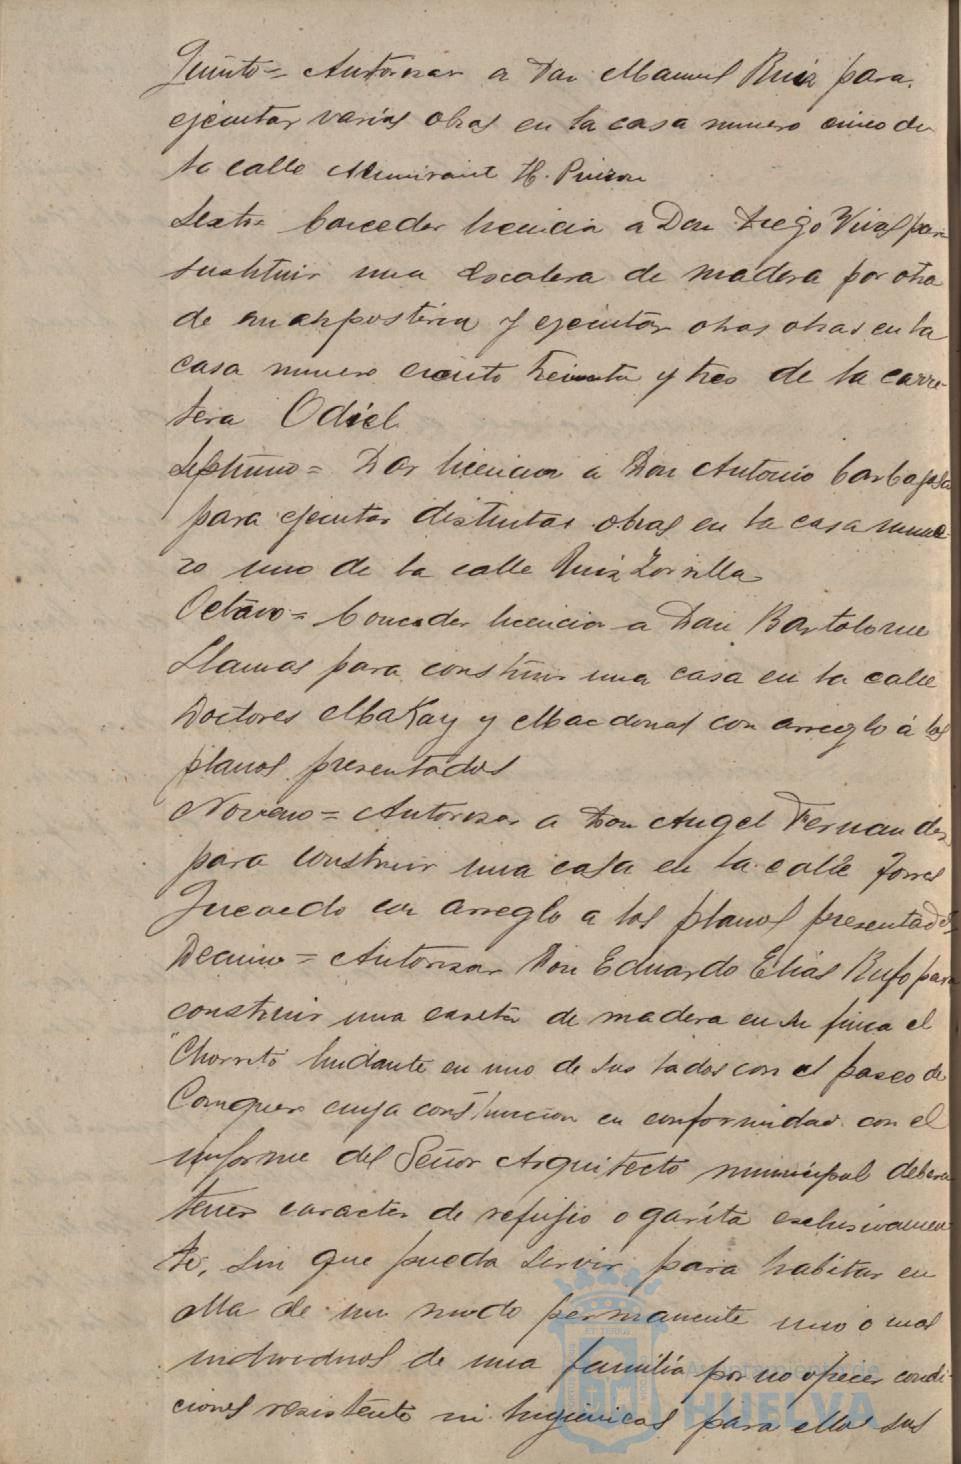 Quinto = Autorizar a Don Manuel Ruiz para
ejecutar varias obras en la casa numero cinco de
la calle Almirante H. Pinzon
Sexto = Conceder licencia a Don Diego Vival para
sustituir una escalera de madera por otra
de mamposteria y ejecutar otras obras en la
casa numero ciento treinta y tres de la carre-
tera Odiel
Septimo = Dar licencia a Don Antonio Carbajosa
para ejecutar distintas obras en la casa nume-
ro uno de la calle Ruiz Zorrilla
Octavo = Conceder licencia a Don Bartolome
Llamas para construir una casa en la calle
Doctores MaKay y Macdonal con arreglo á los
planos presentados
Noveno = Autorizar a Don Angel Fernandez
para construir una casa en la calle Jorres
Quevedo con arreglo a los planos presentados
Decimo = Autorizar Don Eduardo Elias Rufo para
construir una caseta de madera en su finca el
"Chorrito lindante en uno de sus lados con el paseo de
Conquero cuya construccion en conformidad con el
informe del Señor Arquitecto municipal debera
tener caracter de refujio o garita esclusivamen
te, sin que pueda servir para habitar en
ella de un modo permanente uno o mas
individuos de una familia por no ofrecer condi-
ciones resistente ni higienicas para ello sus
Ayuntamiento de
HUELVA